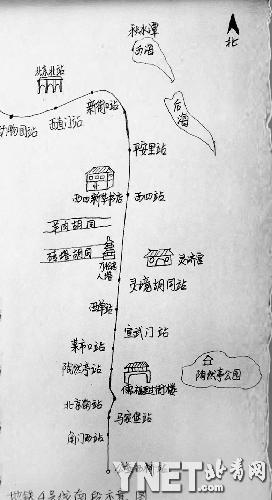 秋水潭
西海
北
北京北站
后海
新街口站
西直门站
动物园站
平安里站
西四新华书店
西四站
羊肉胡同
砖塔胡同
万松老人塔
灵济宫
灵境胡同站
西单站
宣武门站
菜市口站
陶然亭站
陶然亭公园
北京南站
马家堡站
角门西站
地铁4号线南段示意图
YNET.com
北青网